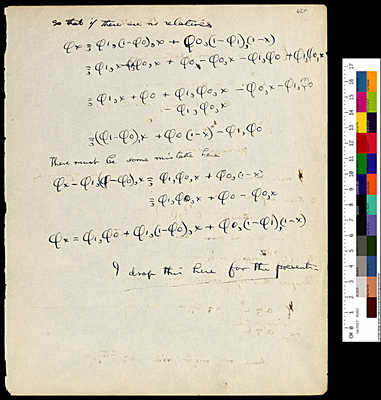 So that if there are no relatives
φx = φ1,(1-φ0),x + φ0,(1-φ1),(1-x)
= φ1,x - φ1,φ0,x + φ0 - φ0,x - φ1,φ0 + φ1,φ0,x
= φ1,x + φ0 + φ1,φ0,x - φ0,x - φ1,φ0
- φ1,φ0,x
=(φ1-φ0),x + φ0 (1-x) - φ1,φ0
There must be some mistake here
φx - φ1,(1-φ0),x = φ1,φ0,x + φ0,(1-x)
= φ1,φ0,x + φ0 - φ0,x
φx = φ1,φ0 + φ1,(1-φ0),x + φ0,(1-φ1),(1-x)
I drop this here for the present.